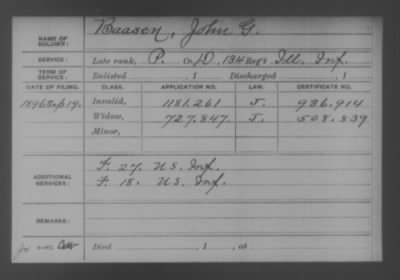 NAME OF SOLDIER: Baasen, John G.
SERVICE: Late rank, P. Co. D, 134 Reg't Ill. Inf.
TERM OF SERVICE: Enlisted , 1 Discharged , 1
DATE OF FILING. CLASS. APPLICATION NO. LAW. CERTIFICATE NO.
1896 Sep 19. Invalid, 1181.261 J. 936.914
Widow, 727.847. J. 508.839
Minor,
ADDITIONAL SERVICES: F. 27. U.S. Inf.
F. 18. U.S. Inf.
REMARKS:
Died , 1 , at